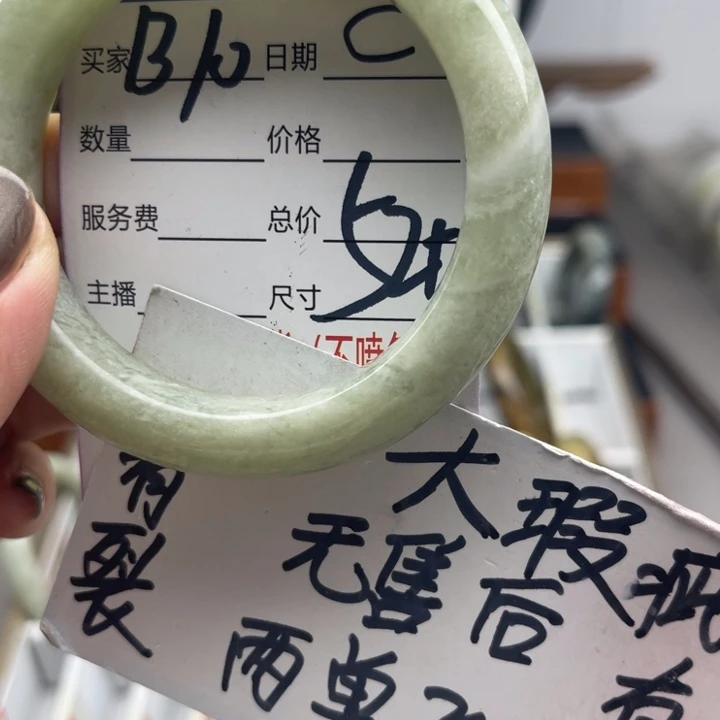 买家 B10 日期 C
数量 价格
服务费 总价
主播 尺寸
(不喷
有裂
大瑕疵
无售后
两单
有